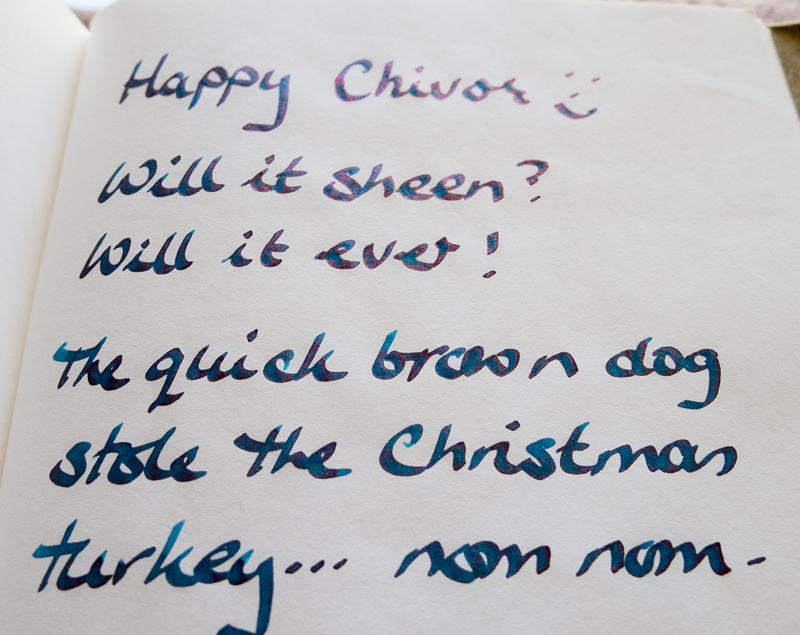 Happy Chivor :)
Will it sheen?
Will it ever!
The quick brown dog
stole the Christmas
turkey... nom nom.